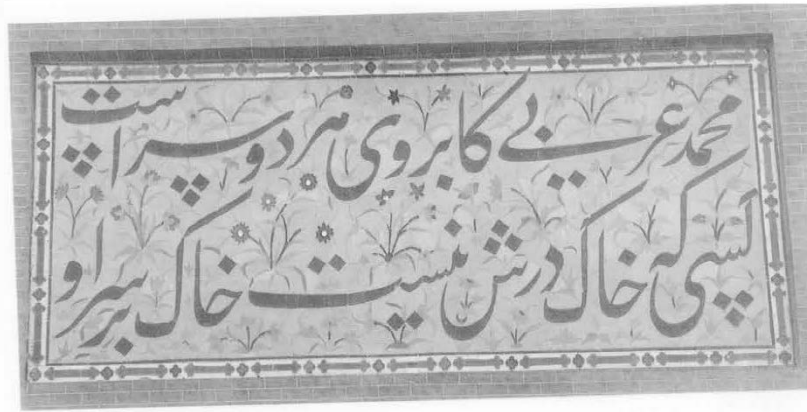 محمد عربی کابروی هر دو سراست
کسی که خاک درش نیست خاک بر سر او